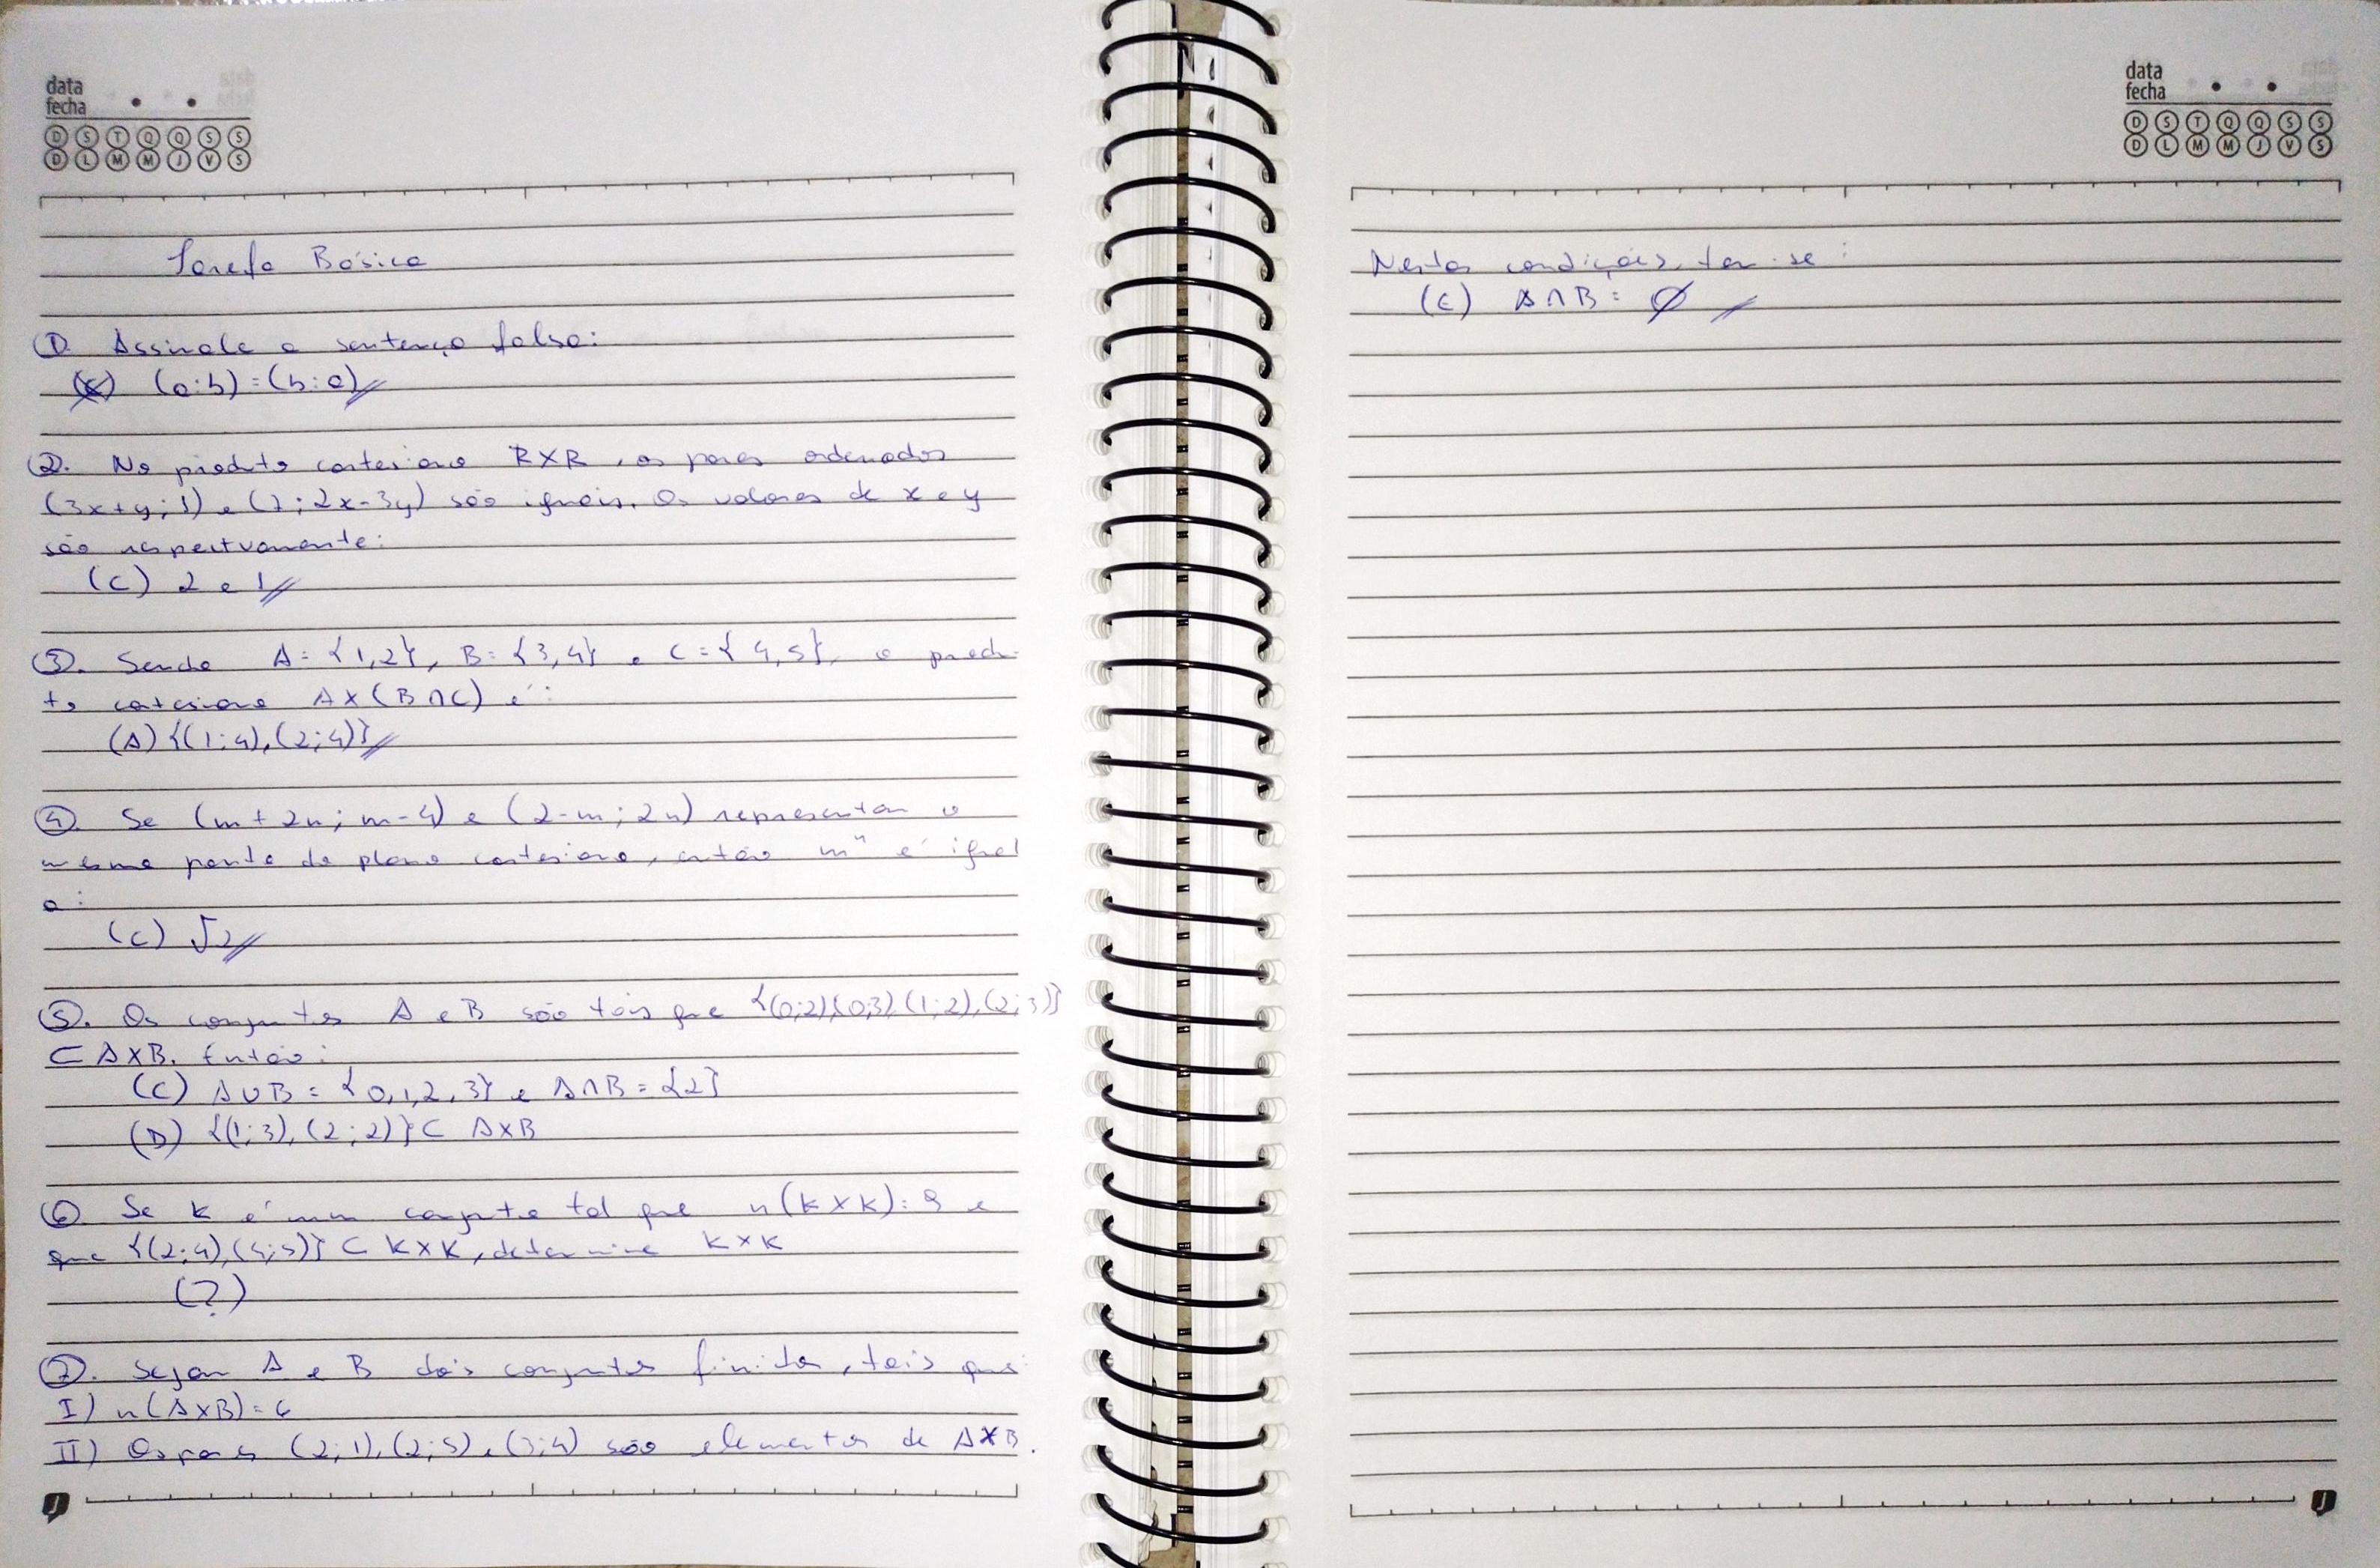 data
fecha
D S T Q Q S S
D L M M J V S
Tarefa Básica
1. Assinale a sentença falsa:
(a;b) = (b;a)
2. No produto cartesiano RXR, os pares ordenados
(3x+y; 1) e (7; 2x-3y) são iguais. Os valores de x e y
são respectvamente:
(C) 2 e 1
3. Sendo A = {1,2}, B = {3,4} e C = {4,5}, o produ-
to cartesiano A X (B ∩ C) é:
(A) {(1;4), (2;4)}
4. Se (m + 2n; m - 4) e (2 - m; 2n) representam o
mesmo ponto do plano cartesiano, então mⁿ é igual
a:
(C) √2
5. Os conjuntos A e B são tais que {(0;2), (0;3), (1;2), (2;3)}
⊂ AXB. Então:
(C) A∪B = {0,1,2,3} e A∩B = {2}
(D) {(1;3), (2;2)} ⊂ AXB
6. Se K é um conjunto tal que n(K X K) = 9 e
que {(2;4), (4;5)} ⊂ K X K, determine K X K
(?)
7. Sejam A e B dois conjuntos finitos, tais que:
I) n(AXB) = 6
II) Os pares (2;1), (2;5), (3;4) são elementos de AXB.
data
fecha
D S T Q Q S S
D L M M J V S
Nestas condições, tem-se:
(E) A∩B = ∅